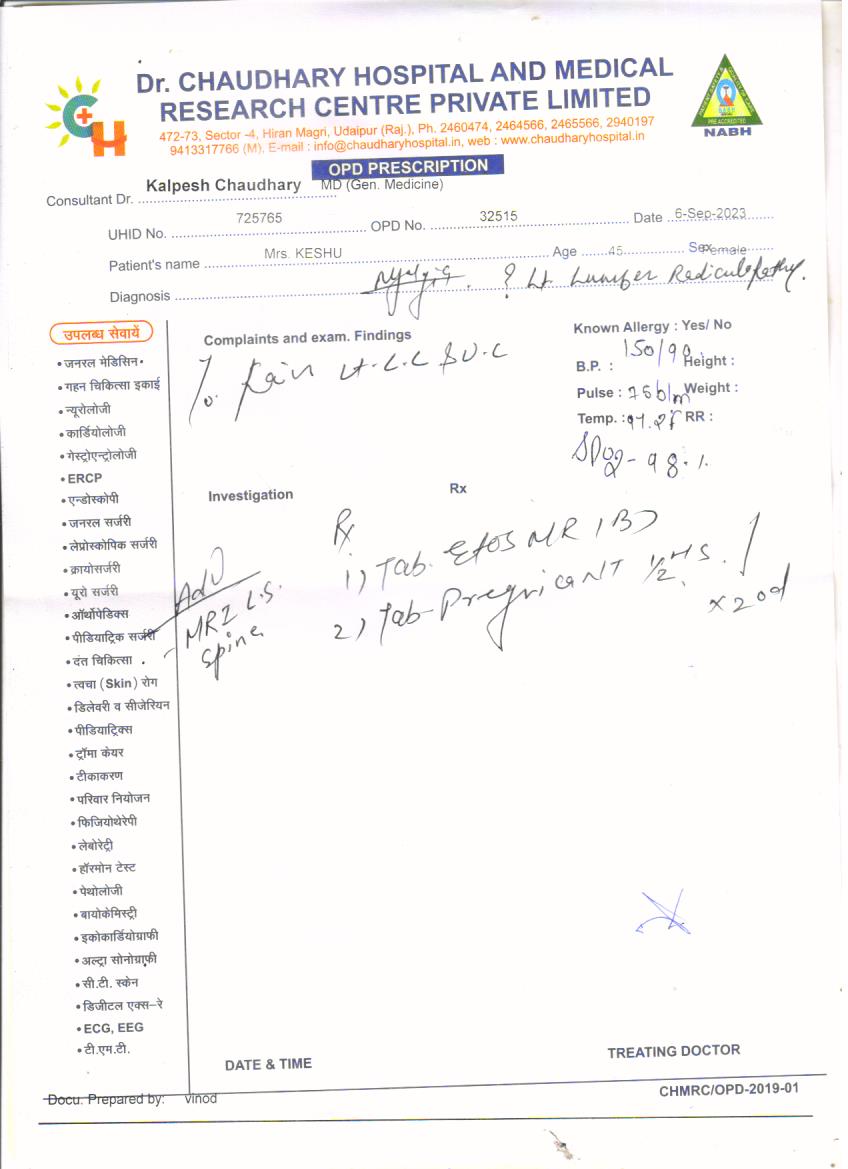 Dr. CHAUDHARY HOSPITAL AND MEDICAL
RESEARCH CENTRE PRIVATE LIMITED
472-73, Sector -4, Hiran Magri, Udaipur (Raj.), Ph. 2460474, 2464566, 2465566, 2940197
9413317766 (M), E-mail : info@chaudharyhospital.in, web : www.chaudharyhospital.in
NABH
PRE ACCREDITED
NABH
CH
OPD PRESCRIPTION
Consultant Dr. Kalpesh Chaudhary MD (Gen. Medicine)
UHID No. 725765 OPD No. 32515 Date 6-Sep-2023
Patient's name Mrs. KESHU Age 45 Sex Female
Diagnosis Myalgia. ? Lt Lumber Rediculopathy.
उपलब्ध सेवायें
• जनरल मेडिसिन
• गहन चिकित्सा इकाई
• न्यूरोलोजी
• कार्डियोलोजी
• गेस्ट्रोएन्ट्रोलोजी
• ERCP
• एन्डोस्कोपी
• जनरल सर्जरी
• लेप्रोस्कोपिक सर्जरी
• क्रायोसर्जरी
• यूरो सर्जरी
• ऑर्थोपेडिक्स
• पीडियाट्रिक सर्जरी
• दंत चिकित्सा
• त्वचा (Skin) रोग
• डिलेवरी व सीजेरियन
• पीडियाट्रिक्स
• ट्रॉमा केयर
• टीकाकरण
• परिवार नियोजन
• फिजियोथेरेपी
• लेबोरेट्री
• हॉरमोन टेस्ट
• पेथोलोजी
• बायोकेमिस्ट्री
• इकोकार्डियोग्राफी
• अल्ट्रा सोनोग्राफी
• सी.टी. स्केन
• डिजीटल एक्स-रे
• ECG, EEG
• टी.एम.टी.
Complaints and exam. Findings
Pain Lt. L.L
Known Allergy : Yes/ No
B.P. : 150/90 Height :
Pulse : 76b/m Weight :
Temp. : 97.2F RR :
SPO2 - 98%
Investigation
Rx
Adv
MRI L.S.
Spine
Rx
1) Tab. Etos MR 1 BD
2) Tab Pregvica NT 1/2 HS.
x 20d
DATE & TIME
TREATING DOCTOR
Docu. Prepared by: vinod
CHMRC/OPD-2019-01